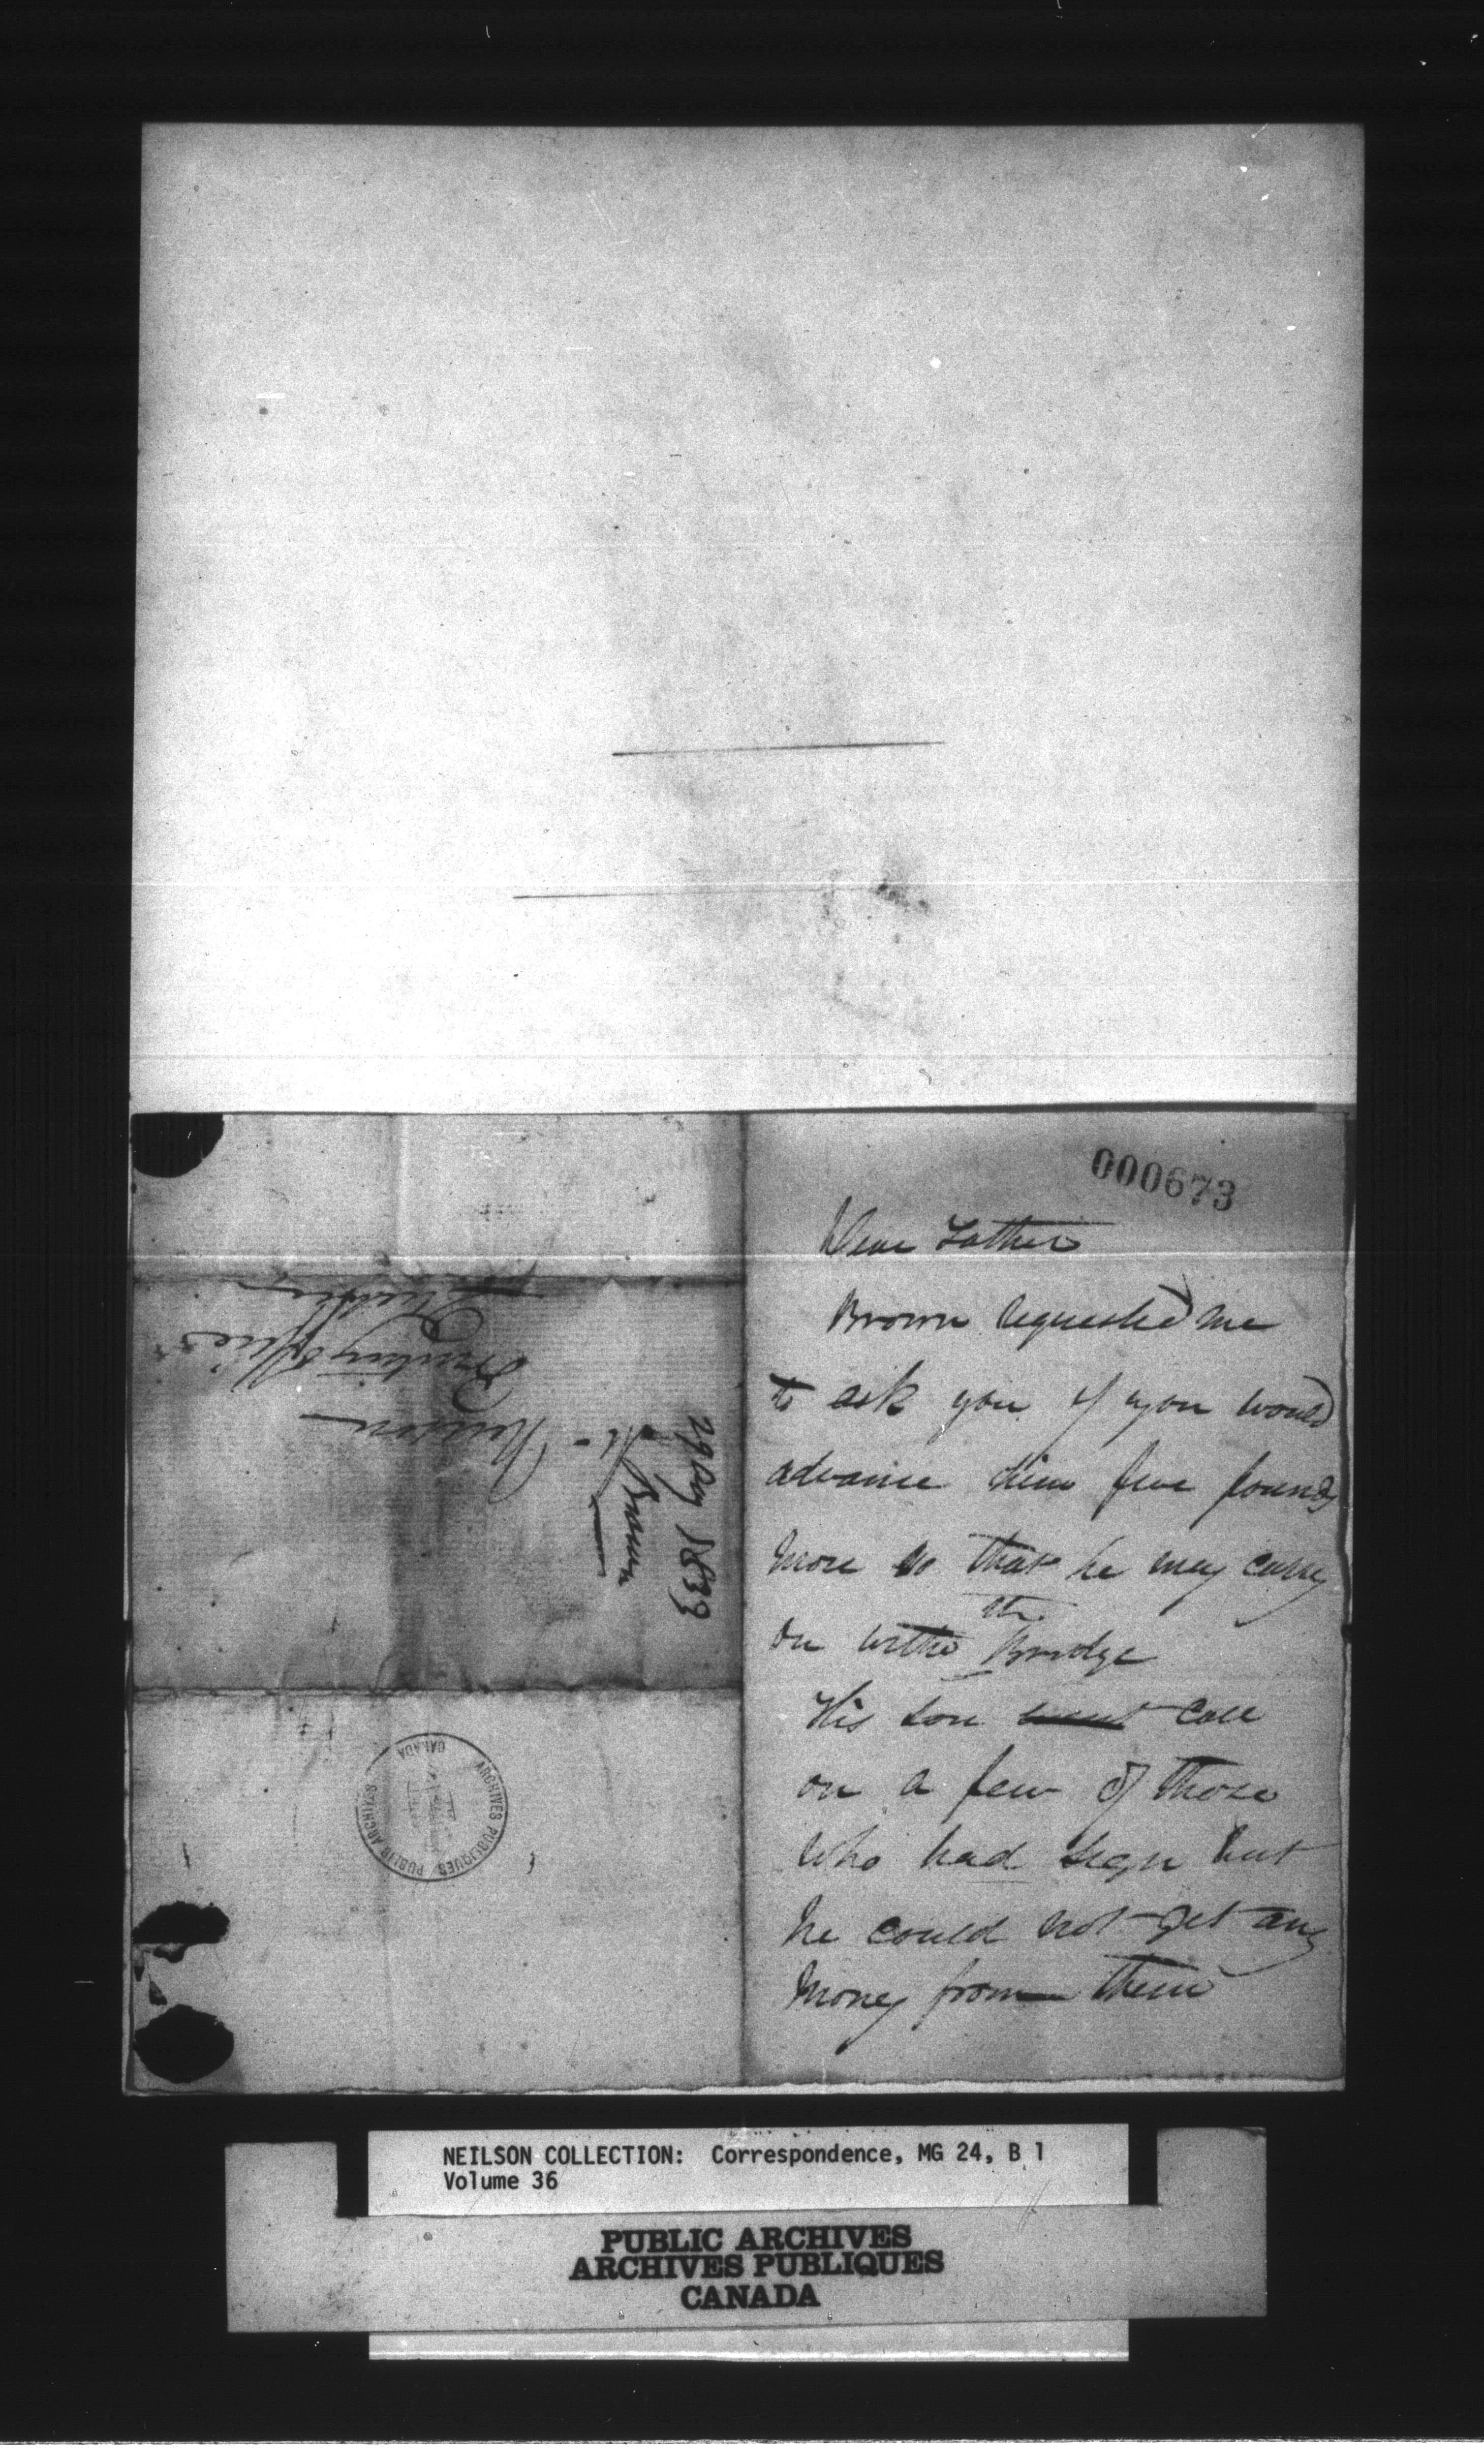 000673
Dear Father
Brown requested me
to ask you if you would
advance him five pounds
more so that he may carry
on with the Bridge
His son went call
on a few of those
who had sign but
he could not get any
money from them
29 Aug 1839
Brown
Mr Neilson
Printing Office
Quebec
ARCHIVES PUBLIQUES PUBLIC ARCHIVES
CANADA
NEILSON COLLECTION: Correspondence, MG 24, B 1
Volume 36
PUBLIC ARCHIVES
ARCHIVES PUBLIQUES
CANADA